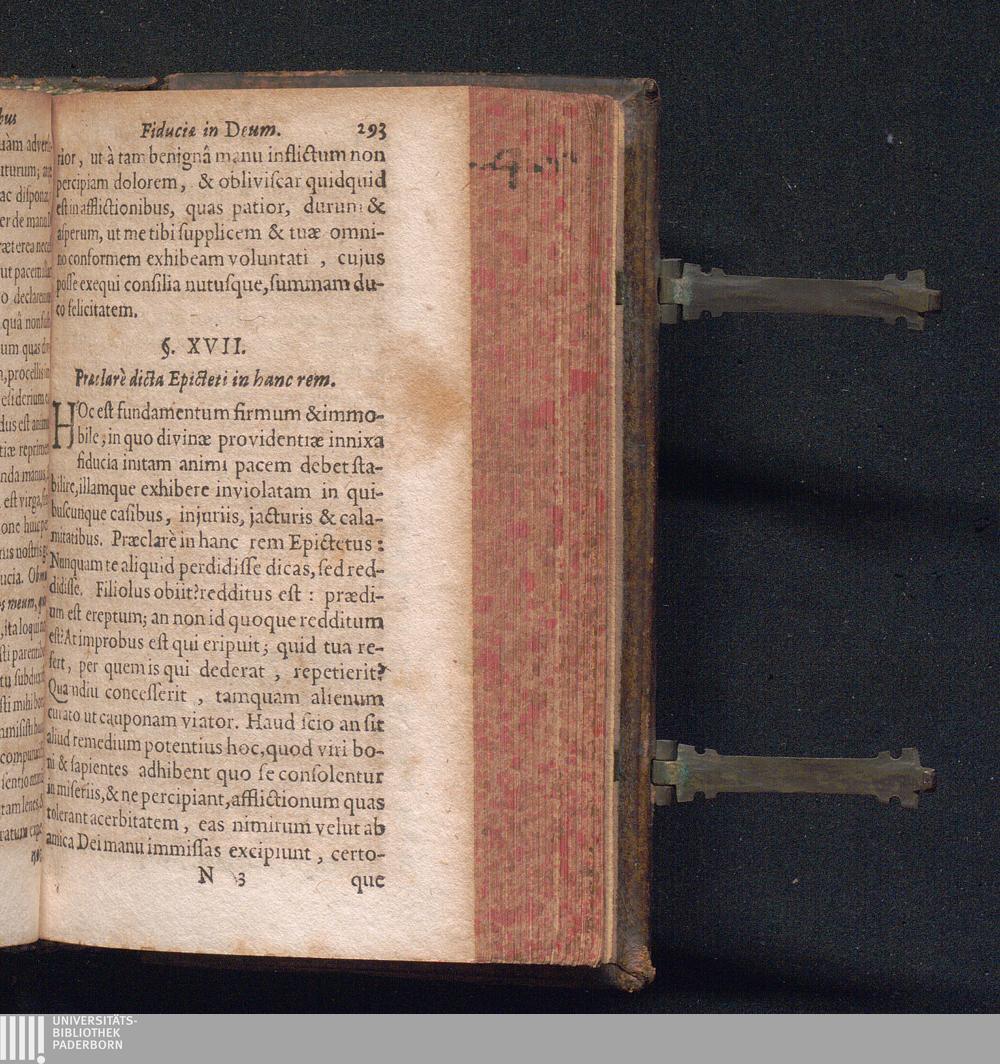 Fiduciæ in Deum. 293
rior, ut à tam benignâ manu inflictum non
percipiam dolorem, & obliviſcar quidquid
eſt in afflictionibus, quas patior, durum &
aſperum, ut me tibi ſupplicem & tuæ omni-
no conformem exhibeam voluntati, cujus
poſſe exequi conſilia nutuſque, ſummam du-
co felicitatem.
§. XVII.
Præclarè dicta Epicteti in hanc rem.
HOc eſt fundamentum firmum & immo-
bile; in quo divinæ providentiæ innixa
fiducia initam animi pacem debet ſta-
bilire, illamque exhibere inviolatam in qui-
buſcunque caſibus, injuriis, jacturis & cala-
mitatibus. Præclarè in hanc rem Epictetus:
Nunquam te aliquid perdidiſſe dicas, ſed red-
didiſſe. Filiolus obiit? redditus eſt: prædi-
um eſt ereptum; an non id quoque redditum
eſt? At improbus eſt qui eripuit; quid tua re-
fert, per quem is qui dederat, repetierit?
Quandiu conceſſerit, tamquam alienum
curato ut cauponam viator. Haud ſcio an ſit
aliud remedium potentius hoc, quod viri bo-
ni & ſapientes adhibent quo ſe conſolentur
in miſeriis, & ne percipiant, afflictionum quas
tolerant acerbitatem, eas nimirum velut ab
amica Dei manu immiſſas excipiunt, certo-
N 3 que
UNIVERSITÄTS-
BIBLIOTHEK
PADERBORN